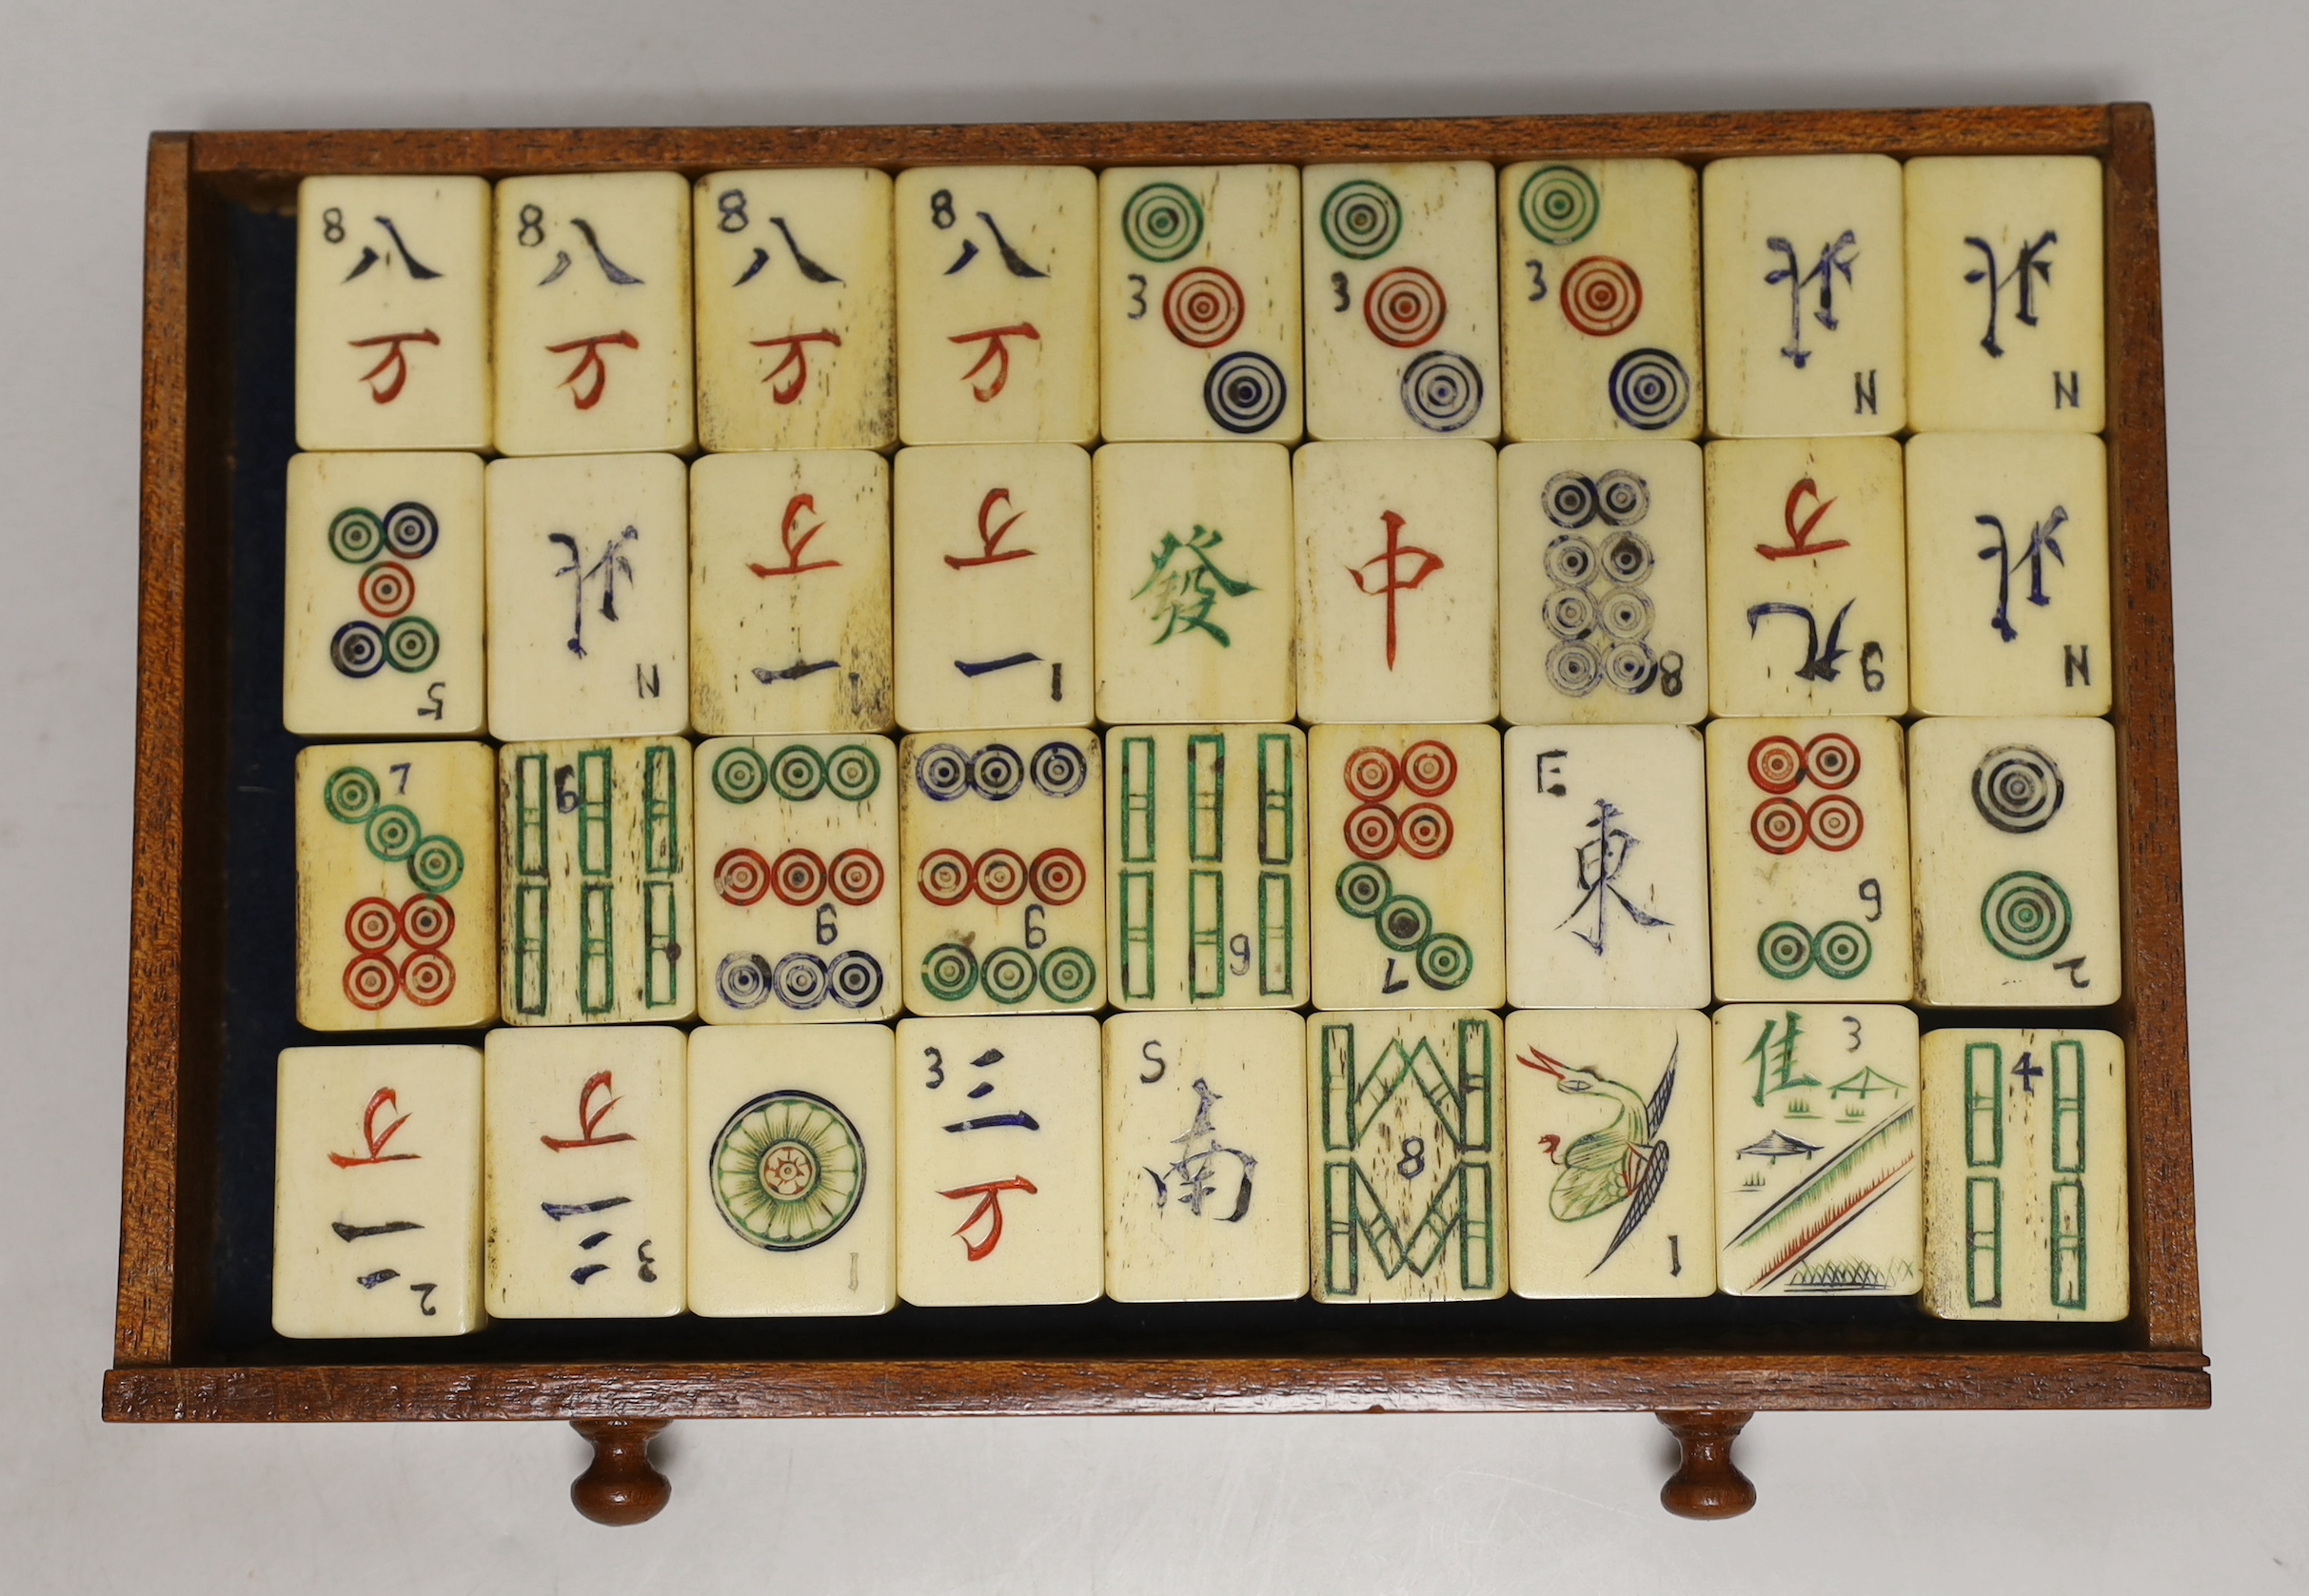 8 八 万
8 八 万
8 八 万
8 八 万
3
3
3
北 N
北 N
5
北 N
万 一 1
万 一 1
發
中
8
万 九 9
北 N
7
6
9
9
6
7
E 東
6
2
万 二 2
万 三 3
1
3 三 万
S 南
8
1
佳 3
4